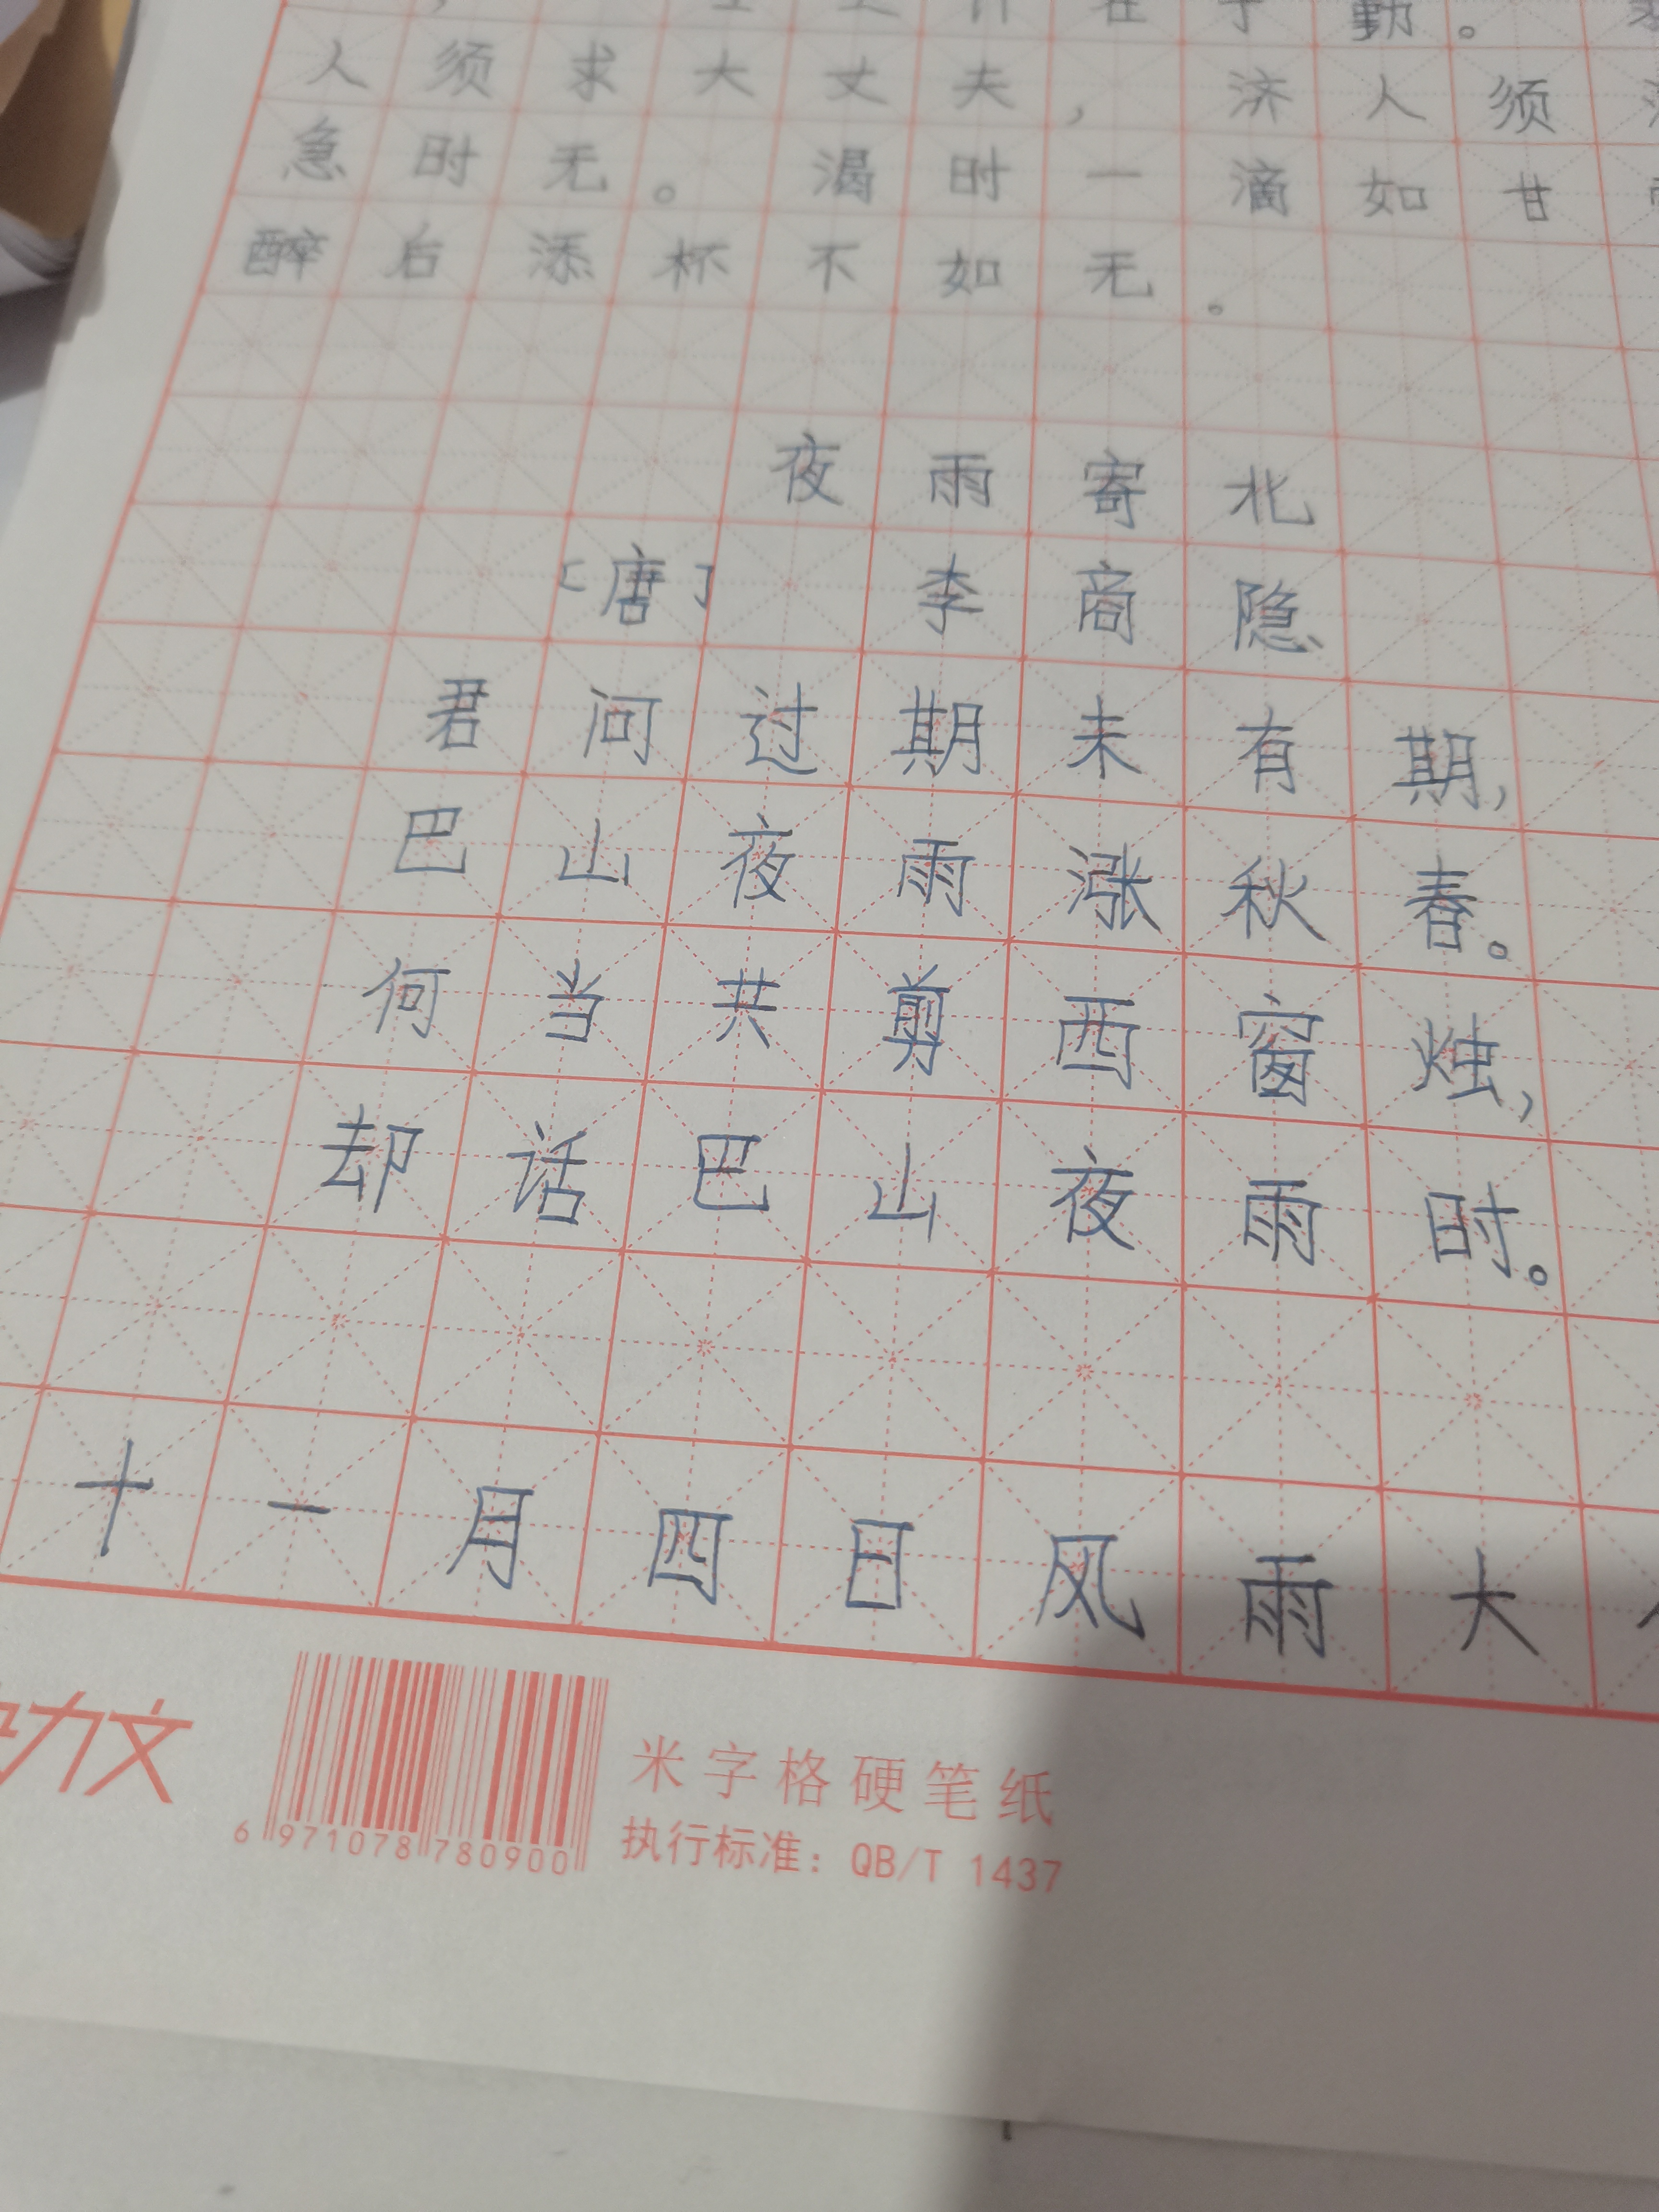 在于勤。
人须求大丈夫，济人须
急时无。渴时一滴如甘
醉后添杯不如无。
夜雨寄北
［唐］ 李商隐
君问过期未有期，
巴山夜雨涨秋春。
何当共剪西窗烛，
却话巴山夜雨时。
十一月四日风雨大
力文
米字格硬笔纸
执行标准：QB/T 1437
6 971078 780900